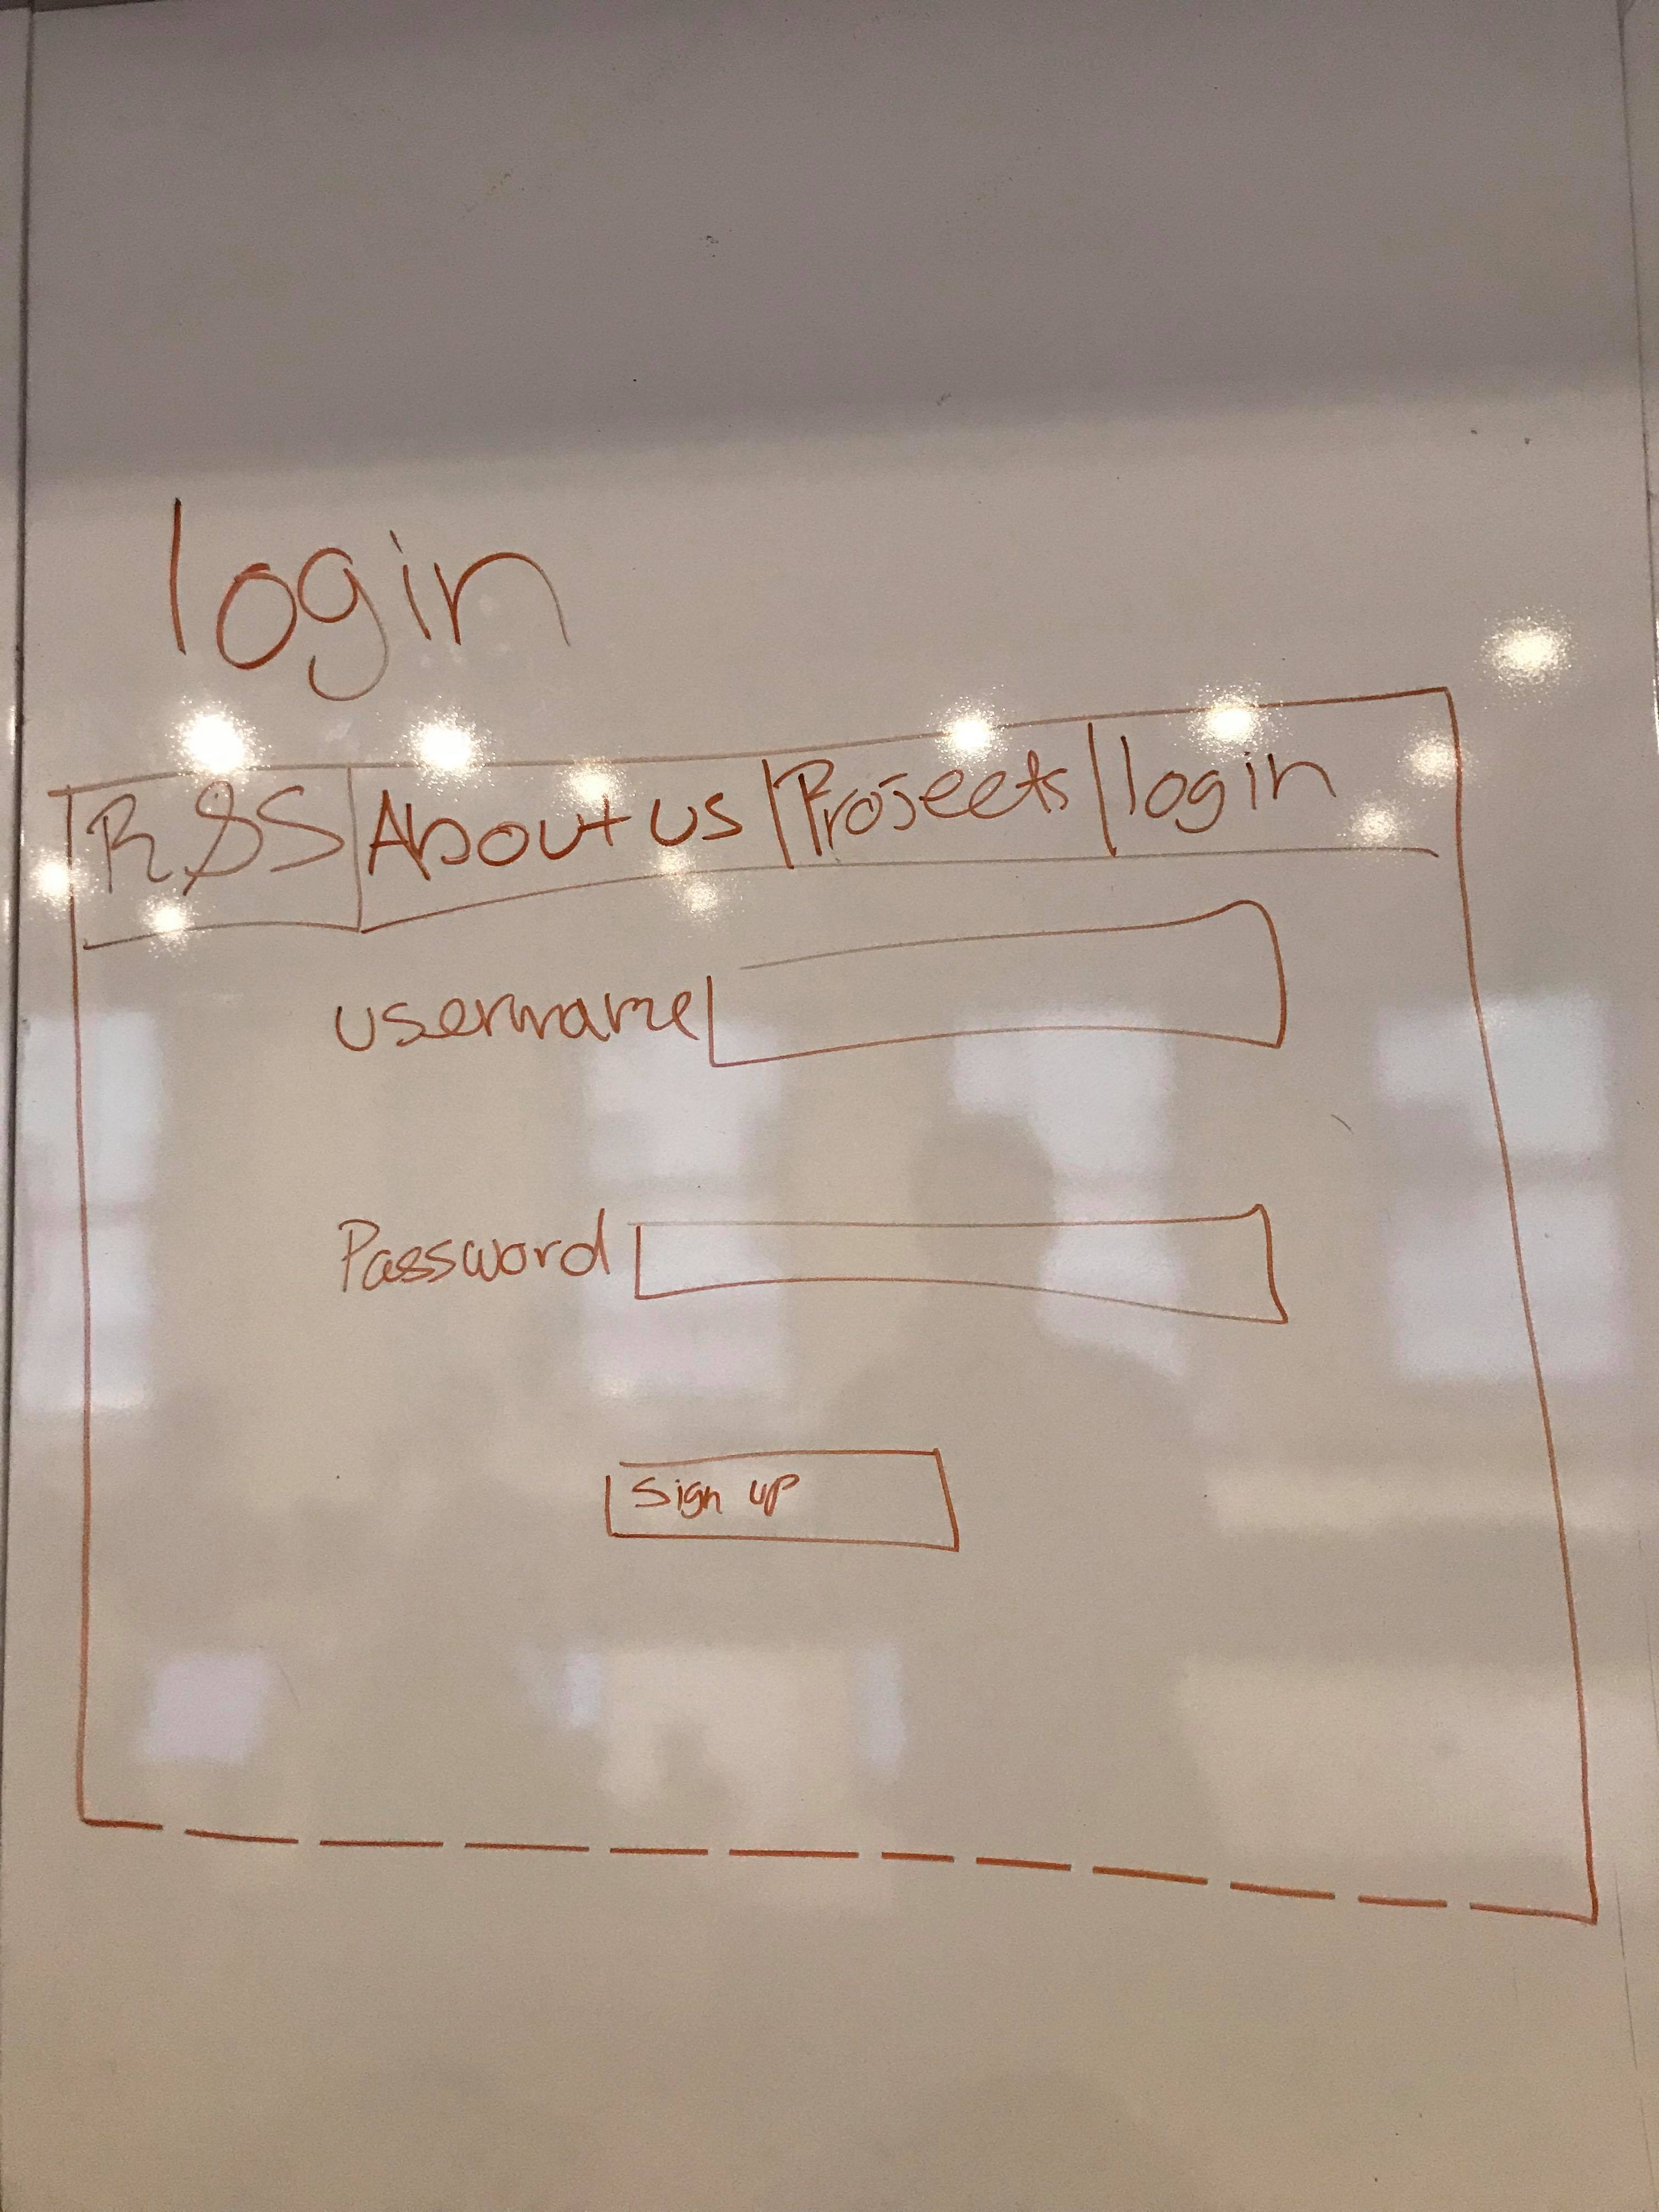 login
RSS About us Projects login
username
Password
Sign up